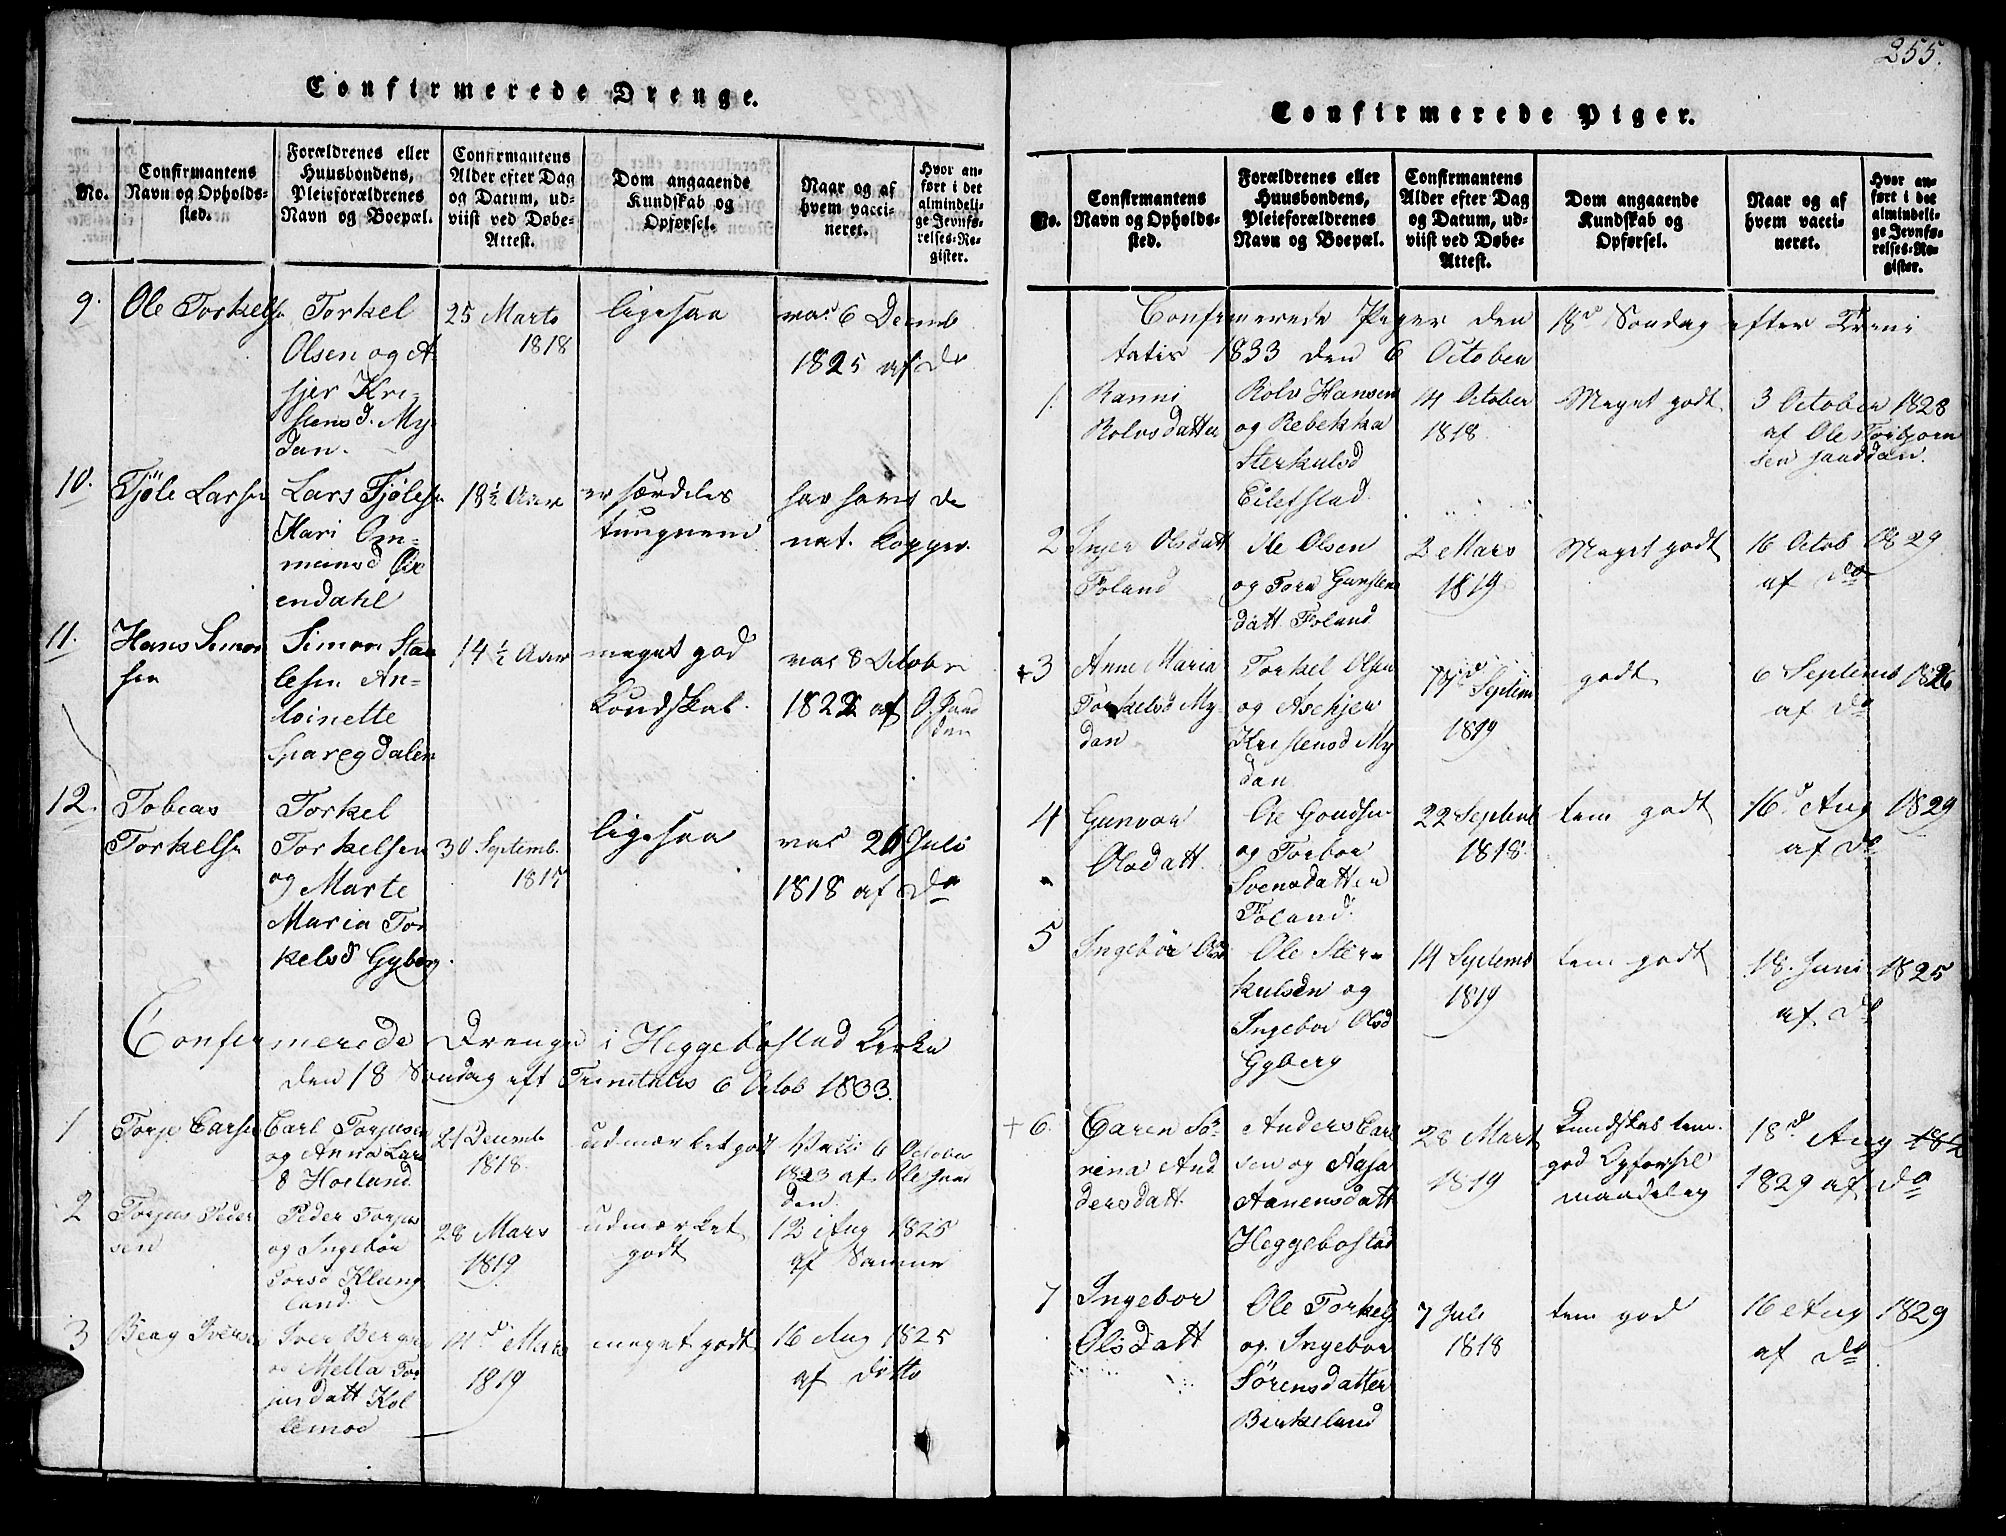 255.
Confirmerede Drenge.
No.
Confirmantens
Navn og Opholds-
sted.
Forældrenes eller
Huusbondens,
Pleieforældrenes
Navn og Boepæl.
Confirmantens
Alder efter Dag
og Datum, ud-
viist ved Døbe-
Attest.
Dom angaaende
Kundskab og
Opførsel.
Naar og af
hvem vacci-
neret.
Hvor an-
ført i det
almindeli-
ge Jevnfø-
relses-Re-
gister.
9. Ole Torkels
Torkel
Olsen og A
sjer Kri-
stensd. My
dan.
25 Marts
1818
ligesaa
vac 6 Decmb
1825 af do
10. Tjöle Larsen
Lars Tjölesen
Kari Om-
mensd Öi
endahl
18½ Aar
er særdeles
tungnem
har havt de
nat. Kopper.
11. Hans Simon
sen
Simon Staa
lesen An-
toinette
Sparegdalen
14½ Aar
meget god
Kundskab.
vac 8 Octobr
1822 af O. Jaad
den
12. Tobias
Torkelsen
Torkel
Torkelsen
og Marte
Maria Tor
kelsd Gyberg.
30. Septemb.
1817
ligesaa
vac 26 Juli
1818 af do
Confirmerede Drenge i Heggebostad Kirke
den 18 Sondag eft Trinitatis 6 Octob 1833.
1 Torje Carlsen
Carl Torjusen
og Anna Lars
d Horland
21 Decemb
1818.
udmærket godt
Vacci 6 October
1823 af Ole Jaad
den
2 Torjus Peder
sen
Peder Torjus
og Ingebör
Torsd Klung
land.
28 Mars
1819
udmærket
godt
12 Aug 1825
af Samme
3 Berg Iversen
Iver Berge
og Mella Tor
jusdatt Kol
lemoe
14de Mars
1819
meget godt
16 Aug 1825
af ditto
Confirmerede Piger.
No.
Confirmantens
Navn og Opholds-
sted.
Forældrenes eller
Huusbondens,
Pleieforældrenes
Navn og Boepæl.
Confirmantens
Alder efter Dag
og Datum, ud-
viist ved Døbe-
Attest.
Dom angaaende
Kundskab og
Opførsel.
Naar og af
hvem vacci-
neret.
Hvor an-
ført i det
almindeli-
ge Jevnfø-
relses-Re-
gister.
Confirmerede Piger den 18de Sondag efter Trini
tatis 1833 den 6 October
1. Ranni
Rolvsdatter
Rolv Hansen
og Rebekka
Sterkulsd
Eilefstad
14 October
1818
Meget godt
3 October 1828
af Ole Torbjorn
sen Jaaddan.
2 Inger Olsdatt
Foland
Ole Olsen
og Tora Gunstens
datt Foland
3 Mars
1819
Meget godt
16 Octob 1829
af do
+3 Anne Maria
Torkelsd My
dan
Torkel Olsen
og Aschjer
Kristensd My
dan
17de Septem
1819
godt
6 Septemb 1826
af do
4 Gunvor
Olsdatt
Ole Goudsen
og Torbor
Svensdatter
Foland.
22 Septemb
1818.
tem godt
16d Aug 1829
af do
5 Ingebör Ols
Ole Ster-
kulsen og
Ingebor Olsd
Gyberg
14 Septemb
1819
tem godt
18. Juni 1825
af do
+ 6. Caren Sö
rina And
dersdatt
Anders Carl
sen og Aasa
Aanensdatt
Heggebostad
28 Mart
1819
Kundskab tem.
god Opførsel
maadelig
18de Aug
1829 af do
7 Ingebor
Olsdatt
Ole Torkels
og Ingebor
Sörensdatter
Birkeland
7 Juli
1818
tem god
16 Aug 1829
af do